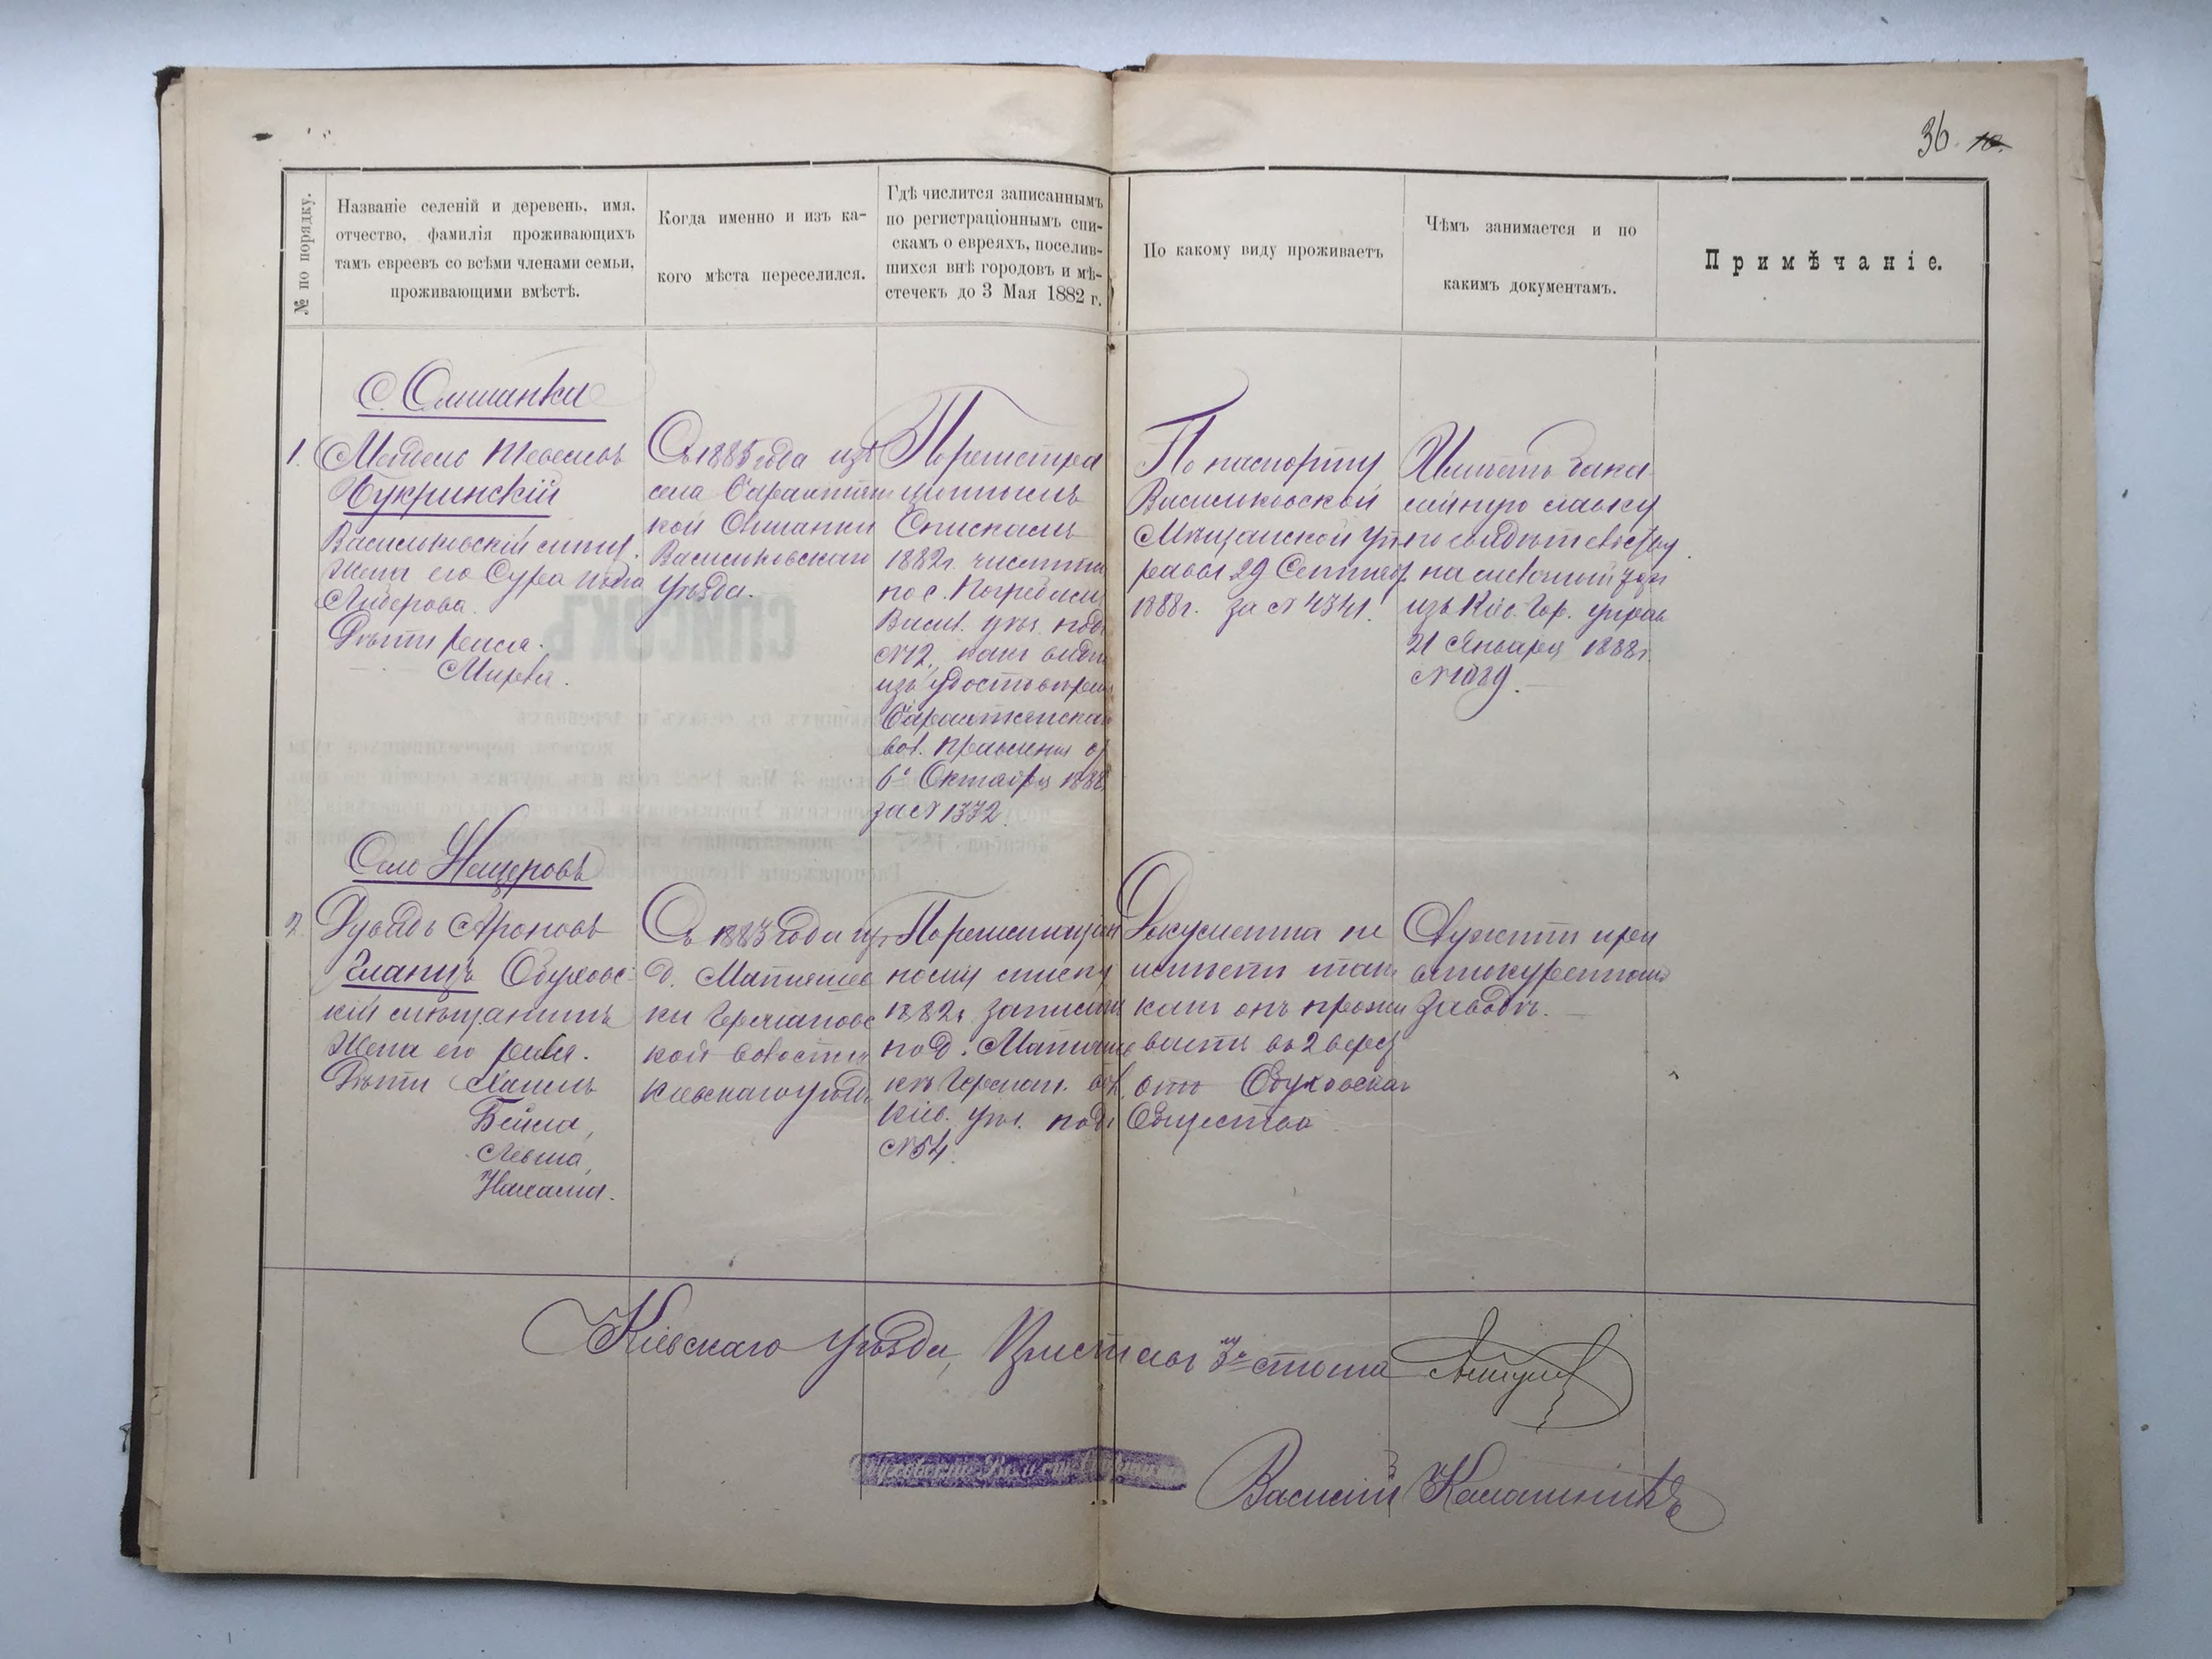 36. 10.
№ по порядку.
Названіе селеній и деревень, имя,
отчество, фамилія проживающихъ
тамъ евреевъ со всѣми членами семьи,
проживающими вмѣстѣ.
Когда именно и изъ ка-
кого мѣста переселился.
Гдѣ числится записаннымъ
по регистраціоннымъ спи-
скамъ о евреяхъ, поселив-
шихся внѣ городовъ и мѣ-
стечекъ до 3 Мая 1882 г.
По какому виду проживаетъ
Чѣмъ занимается и по
какимъ документамъ.
Примѣчаніе.
С. Ольшанка
1.
Мендель
Букринскій
Васильковскій
Жена его Сура
Дѣти Рейся.
Мирля.
Съ 1885 года изъ
села
кой Ольшанки
Васильковскаго
уѣзда.
По регистра
ціоннымъ
Спискамъ
1882 г. числится
по с.
Васил. уѣз. подъ
№ 12, какъ видно
изъ удостовѣрен
вол. правленія от
6 Октября 1888
за № 1372.
По паспорту
Васильковской
Мѣщанской Уп
равы 29 Сентяб.
1888 г. за № 4341.
Имѣетъ бака
лейную лавку
по свидѣтельству
на мелочный торг
изъ Кіев. Гор. управ
21 Января 1888 г.
Село Нещеровъ
2.
Дувидъ Ароновъ
Гланцъ Обуховс-
кій мѣщанинъ
Жена его Ривля.
Дѣти Хаимъ
Бейла,
Нахама.
Съ 1883 года изъ
д. Матяшев
ки Германовс
кой волости
Кіевскаго уѣзда
По регистраціон
ному списку
1882 г. записанъ
по д. Матяшев
кѣ Герман. вол.
Кіев. уѣз. подъ
№ 54.
Документа не
имѣетъ такъ
какъ онъ прожи
ваетъ въ 2 верст
отъ Обуховскаго
Общества
Служитъ при
винокуренномъ
заводѣ.
Кіевскаго уѣзда, Приставъ 3го стана
Василій